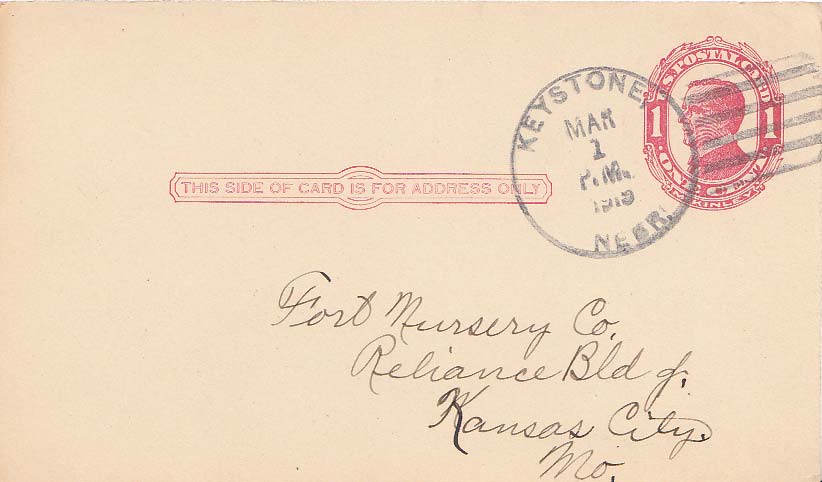 U.S. POSTAL CARD
1 1
ONE CENT
McKINLEY
KEYSTONE,
MAR
1
P.M.
NEBR.
THIS SIDE OF CARD IS FOR ADDRESS ONLY
Fort Nursery Co.
Reliance Bldg.
Kansas City.
Mo.